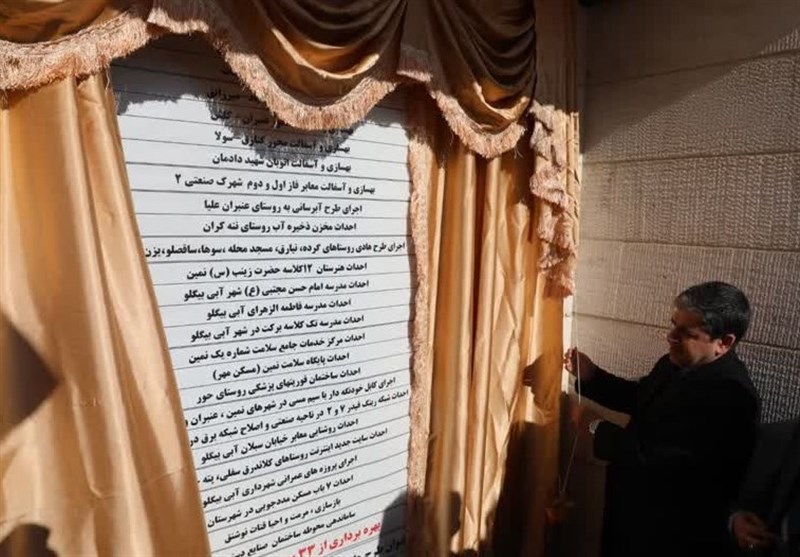 سرزانق
عنبران - کلش
بهسازی و آسفالت محور کنازق - سولا
بهسازی و آسفالت اتوبان شهید دادمان
بهسازی و آسفالت معابر فاز اول و دوم شهرک صنعتی ۲
اجرای طرح آبرسانی به روستای عنبران علیا
احداث مخزن ذخیره آب روستای ننه کران
اجرای طرح هادی روستاهای گرده، نیارق، مسجد محله ،سوها،ساقصلو،یزن
احداث هنرستان ۱۲کلاسه حضرت زینب (س) نمین
احداث مدرسه امام حسن مجتبی (ع) شهر آبی بیگلو
احداث مدرسه فاطمه الزهرای آبی بیگلو
احداث مدرسه تک کلاسه برکت در شهر آبی بیگلو
احداث مرکز خدمات جامع سلامت شماره یک نمین
احداث پایگاه سلامت نمین (مسکن مهر)
احداث ساختمان فوریتهای پزشکی روستای حور
اجرای کابل خودنگه دار با سیم مسی در شهرهای نمین ، عنبران و
احداث شبکه رینگ فیدر ۷ و ۲ در ناحیه صنعتی و اصلاح شبکه برق در
احداث روشنایی معابر خیابان سبلان آبی بیگلو
احداث سایت جدید اینترنت روستاهای کلاندرق سفلی، پته
اجرای پروژه های عمرانی شهرداری آبی بیگلو
احداث ۷ باب مسکن مددجویی در شهرستان
بازسازی ، مرمت و احیا قنات نوشنق
ساماندهی محوطه ساختمان صنایع دستی
بهره برداری از ۳۳